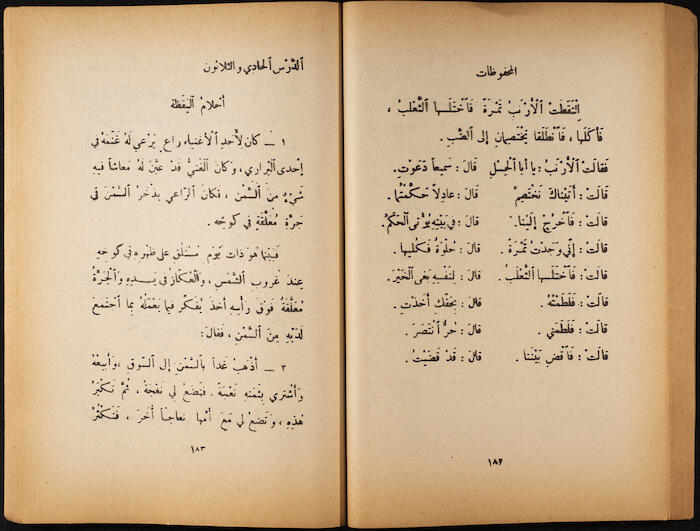 المحفوظات
اِلْتَقَطَتِ ٱلْأَرْنَبُ تَمْرَةً فَٱخْتَلَسَها ٱلثَّعْلَبُ ،
فَأَكَلَها ، فَٱنْطَلَقا يَخْتَصِمانِ إِلى ٱلضَّبِّ .
فَقالَتِ ٱلْأَرْنَبُ : يا أَبا ٱلْحِسْلِ قالَ : سَمِيعاً دَعَوْتِ .
قالَتْ : أَتَيْناكَ نَخْتَصِمُ قالَ : عادِلاً حَكَّمْتُما .
قالَتْ : فَٱخْرُجْ إِلَيْنا . قالَ : في بَيْتِهِ يُؤْتى ٱلْحَكَمُ .
قالَتْ : إِنِّي وَجَدْتُ تَمْرَةً . قالَ : حُلْوَةً فَكُلِيها .
قالَتْ : فَٱخْتَلَسَها ٱلثَّعْلَبُ . قالَ : لِنَفْسِهِ بَغَى ٱلْخَيْرَ .
قالَتْ : فَلَطَمْتُهُ قالَ : بِحَقِّكِ أَخَذْتِ .
قالَتْ : فَلَطَمَني . قالَ : حُرٌّ ٱنْتَصَرَ .
قالَتْ : فَٱقْضِ بَيْنَنا . قالَ : قَدْ قَضَيْتُ .
١٨٢
ٱلدَّرْسُ ٱلْحادِي وٱلثَّلاثونَ
أَحْلامُ ٱلْيَقَظَةِ
١ – كانَ لِأَحَدِ ٱلْأَغْنِياءِ راعٍ يَرْعَى لَهُ غَنَمَهُ في
إِحْدى ٱلْبَراري ، وَكانَ ٱلْغَنِيُّ قَدْ عَيَّنَ لَهُ مَعاشاً فيهِ
شَيْءٌ مِنَ ٱلسَّمْنِ ، فَكانَ ٱلرَّاعي يَدَّخِرُ ٱلسَّمْنَ في
جَرَّةٍ مُعَلَّقَةٍ في كوخِهِ .
فَبَيْنَما هُوَ ذاتَ يَوْمٍ مُسْتَلْقٍ عَلى ظَهْرِهِ في كوخِهِ
عِنْدَ غُروبِ ٱلشَّمْسِ ، وٱلْعُكَّازُ في يَدِهِ وَٱلْجَرَّةُ
مُعَلَّقَةٌ فَوْقَ رَأْسِهِ أَخَذَ يُفَكِّرُ فيما يَعْمَلُهُ بِما ٱجْتَمَعَ
لَدَيْهِ مِنَ ٱلسَّمْنِ ، فَقالَ :
٢ – أَذْهَبُ غَداً بِٱلسَّمْنِ إِلى ٱلسّوقِ ، وَأَبيعُهُ
وَأَشْتَري بِثَمَنِهِ نَعْجَةً . فَتَضَعُ لي نَعْجَةً ، ثُمَّ تَكْبَرُ
هٰذِهِ ، وَتَضَعُ لي مَعَ أُمِّها نِعاجاً أُخَرَ ، فَتَكْثُرُ
١٨٣